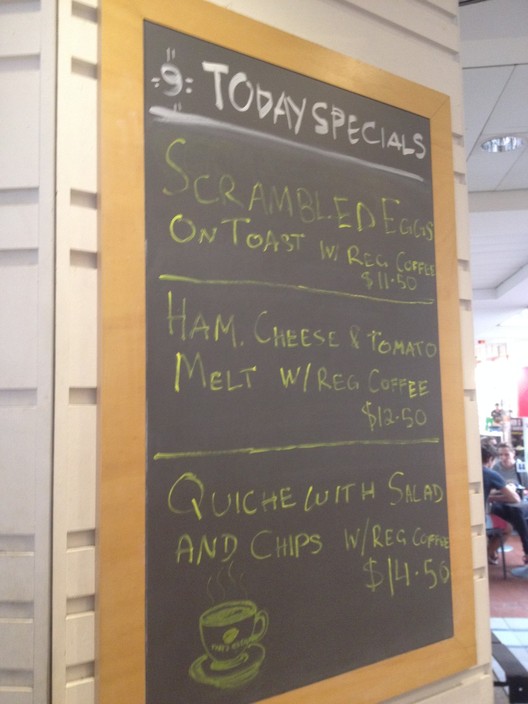 TODAY SPECIALS
SCRAMBLED EGGS
ON TOAST W/ REG COFFEE
$11.50
HAM, CHEESE & TOMATO
MELT W/REG COFFEE
$12.50
QUICHE WITH SALAD
AND CHIPS W/REG COFFEE
$14.50